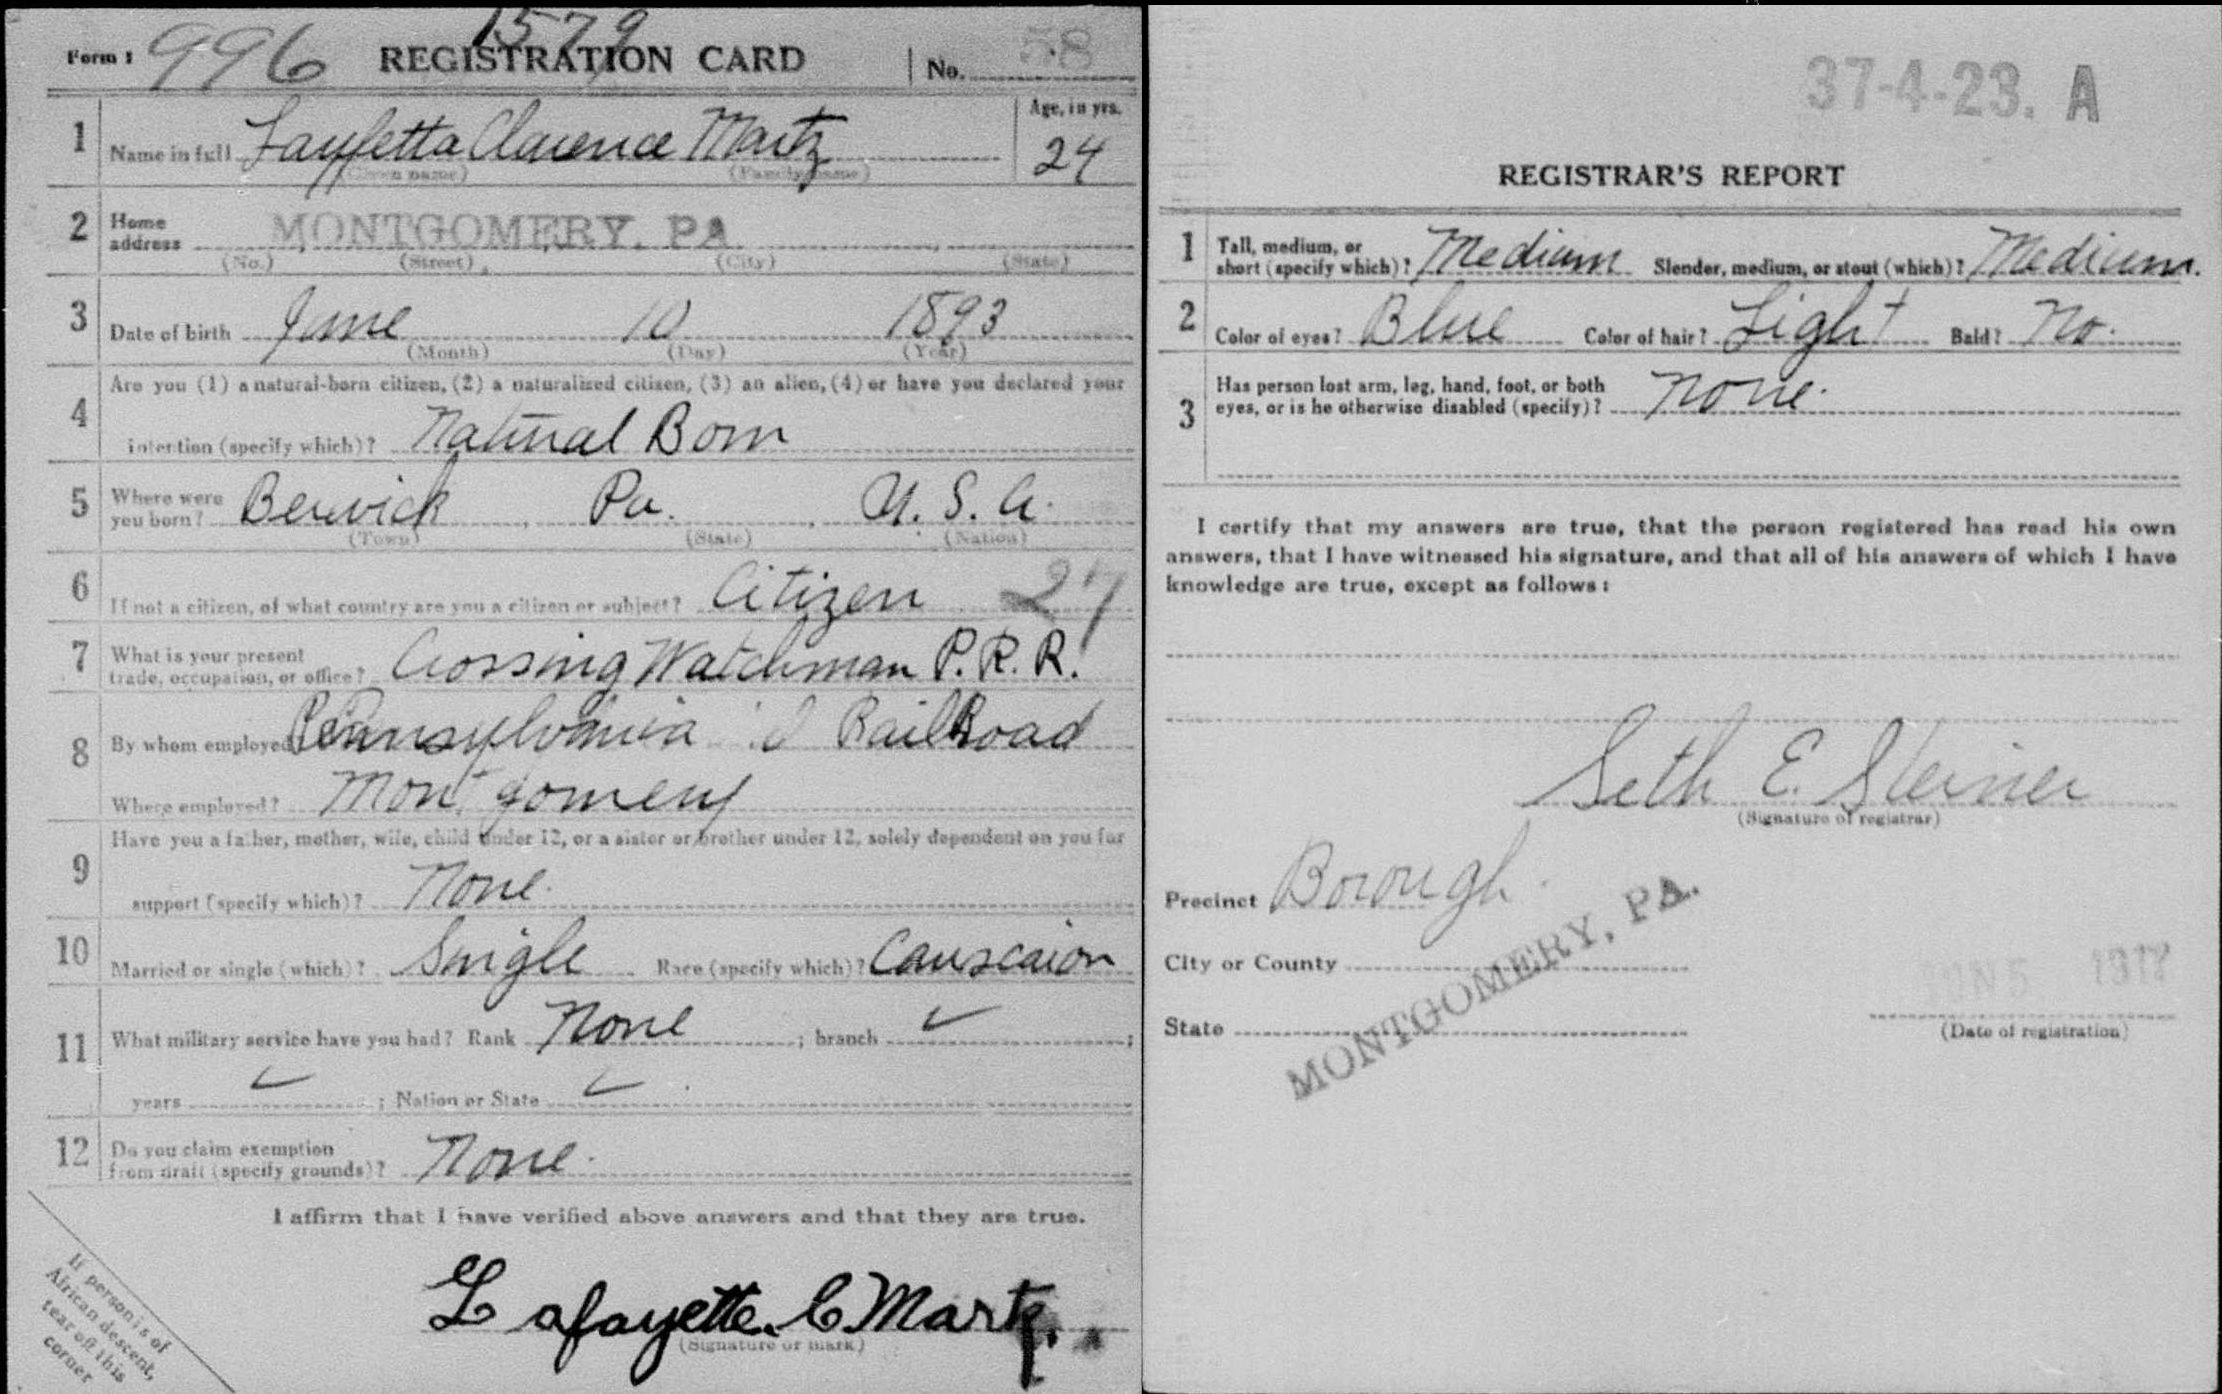 1579
Form 1 996 REGISTRATION CARD No. 58
1 Name in full Layfetta Clarence Martz Age, in yrs. 24
(Given name) (Family name)
2 Home address MONTGOMERY, PA
(No.) (Street) (City) (State)
3 Date of birth June 10 1893
(Month) (Day) (Year)
4 Are you (1) a natural-born citizen, (2) a naturalized citizen, (3) an alien, (4) or have you declared your
intention (specify which)? Natural Born
5 Where were you born? Berwick, Pa. , U. S. A.
(Town) (State) (Nation)
6 If not a citizen, of what country are you a citizen or subject? Citizen 27
7 What is your present trade, occupation, or office? Crossing Watchman P. R. R.
8 By whom employed Pennsylvania RailRoad
Where employed? Montgomery
9 Have you a father, mother, wife, child under 12, or a sister or brother under 12, solely dependent on you for
support (specify which)? None.
10 Married or single (which)? Single Race (specify which)? Causcaion
11 What military service have you had? Rank None ; branch ✓ ;
years ✓ ; Nation or State ✓
12 Do you claim exemption from draft (specify grounds)? None.
I affirm that I have verified above answers and that they are true.
Lafayette. C Martz.
(Signature or mark)
If person is of
African descent,
tear off this
corner
37-4-23. A
REGISTRAR'S REPORT
1 Tall, medium, or short (specify which)? Medium Slender, medium, or stout (which)? Medium.
2 Color of eyes? Blue Color of hair? Light Bald? No.
3 Has person lost arm, leg, hand, foot, or both
eyes, or is he otherwise disabled (specify)? None.
I certify that my answers are true, that the person registered has read his own
answers, that I have witnessed his signature, and that all of his answers of which I have
knowledge are true, except as follows:
Seth E. Steiner
(Signature of registrar)
Precinct Borough.
City or County
MONTGOMERY, PA.
State
JUN 5 1917
(Date of registration)